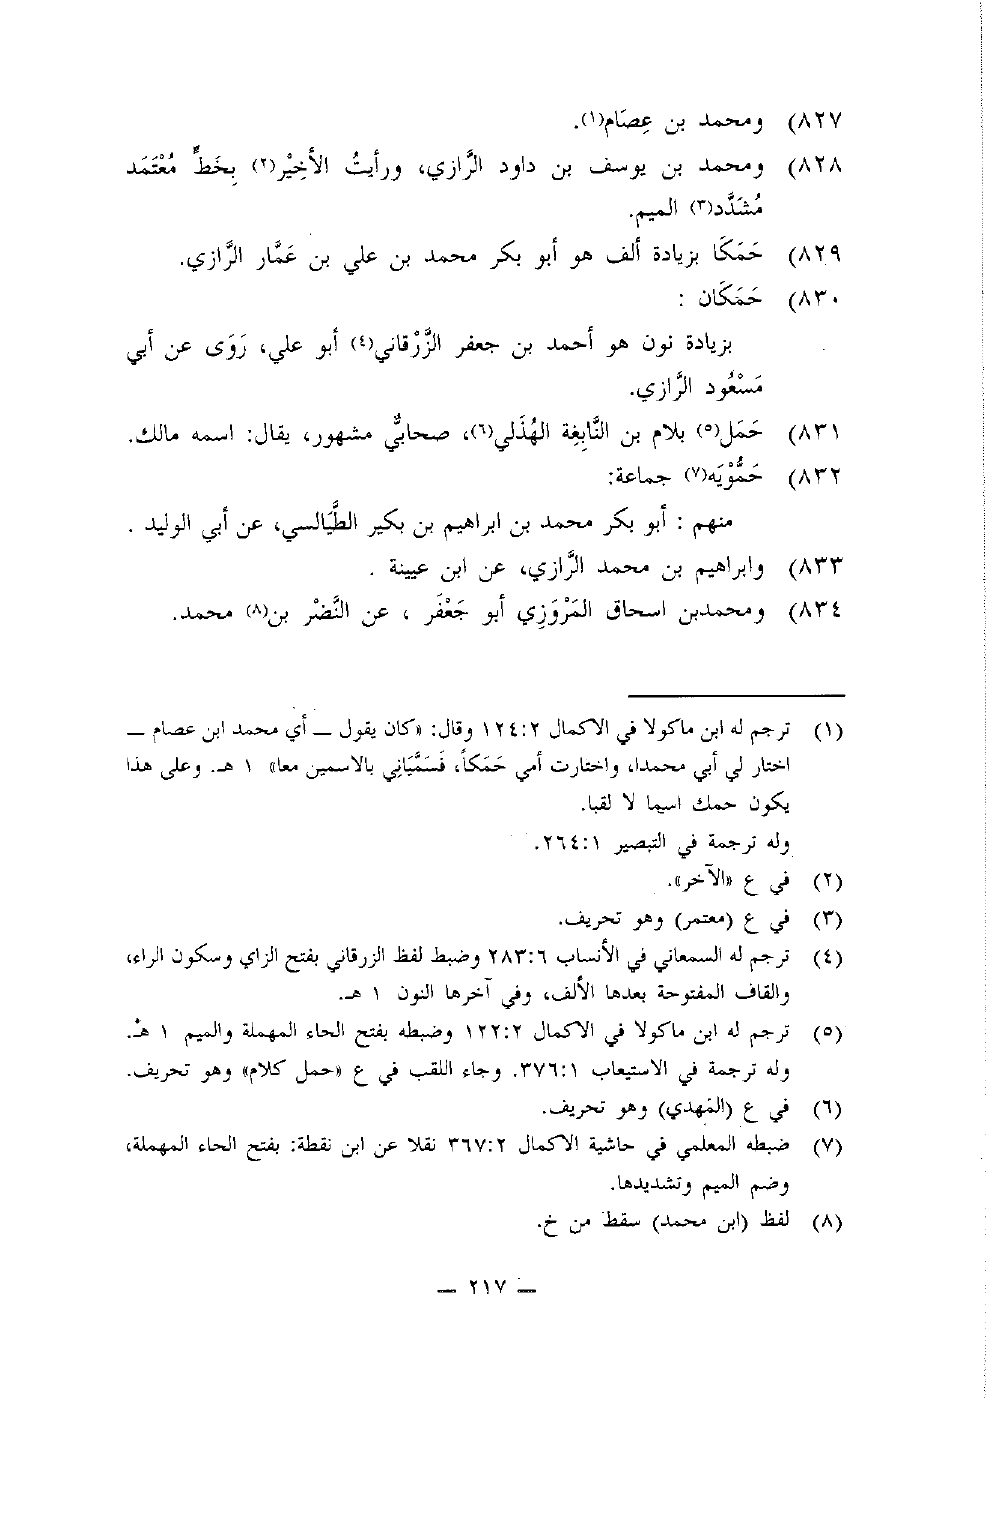 ٨٢٧) ومحمد بن عِصَام(١).
٨٢٨) ومحمد بن يوسف بن داود الرَّازي، ورأيتُ الأخِيْر(٢) بِخَطٍّ مُعْتَمَد
مُشَدَّد(٣) الميم.
٨٢٩) حَمَكَا بزيادة ألف هو أبو بكر محمد بن علي بن عَمَّار الرَّازي.
٨٣٠) حَمَكَان :
بزيادة نون هو أحمد بن جعفر الزَّرْقاني(٤) أبو علي، رَوَى عن أبي
مَسْعُود الرَّازي.
٨٣١) حَمَل(٥) بلام بن النَّابِغة الهُذَلي(٦)، صحابيٌّ مشهور، يقال: اسمه مالك.
٨٣٢) حَمُّوْيَه(٧) جماعة:
منهم : أبو بكر محمد بن ابراهيم بن بكير الطَّيَالسي، عن أبي الوليد .
٨٣٣) وابراهيم بن محمد الرَّازي، عن ابن عيينة .
٨٣٤) ومحمدبن اسحاق المَرْوَزِي أبو جَعْفَر ، عن النَّضْر بن(٨) محمد.
(١) ترجم له ابن ماكولا في الاكمال ١٢٤:٢ وقال: «كان يقول ــ أي محمد ابن عصام ــ
اختار لي أبي محمدا، واختارت أمي حَمَكاً، فَسَمَّيَاني بالاسمين معا» ١ هـ. وعلى هذا
يكون حمك اسما لا لقبا.
وله ترجمة في التبصير ٢٦٤:١.
(٢) في ع «الآخر».
(٣) في ع (معتمر) وهو تحريف.
(٤) ترجم له السمعاني في الأنساب ٢٨٣:٦ وضبط لفظ الزرقاني بفتح الزاي وسكون الراء،
والقاف المفتوحة بعدها الألف، وفي آخرها النون ١ هـ.
(٥) ترجم له ابن ماكولا في الاكمال ١٢٢:٢ وضبطه بفتح الحاء المهملة والميم ١ هـ.
وله ترجمة في الاستيعاب ٣٧٦:١. وجاء اللقب في ع «حمل كلام» وهو تحريف.
(٦) في ع (المهدي) وهو تحريف.
(٧) ضبطه المعلمي في حاشية الاكمال ٣٦٧:٢ نقلا عن ابن نقطة: بفتح الحاء المهملة،
وضم الميم وتشديدها.
(٨) لفظ (ابن محمد) سقط من خ.
ــ ٢١٧ ــ